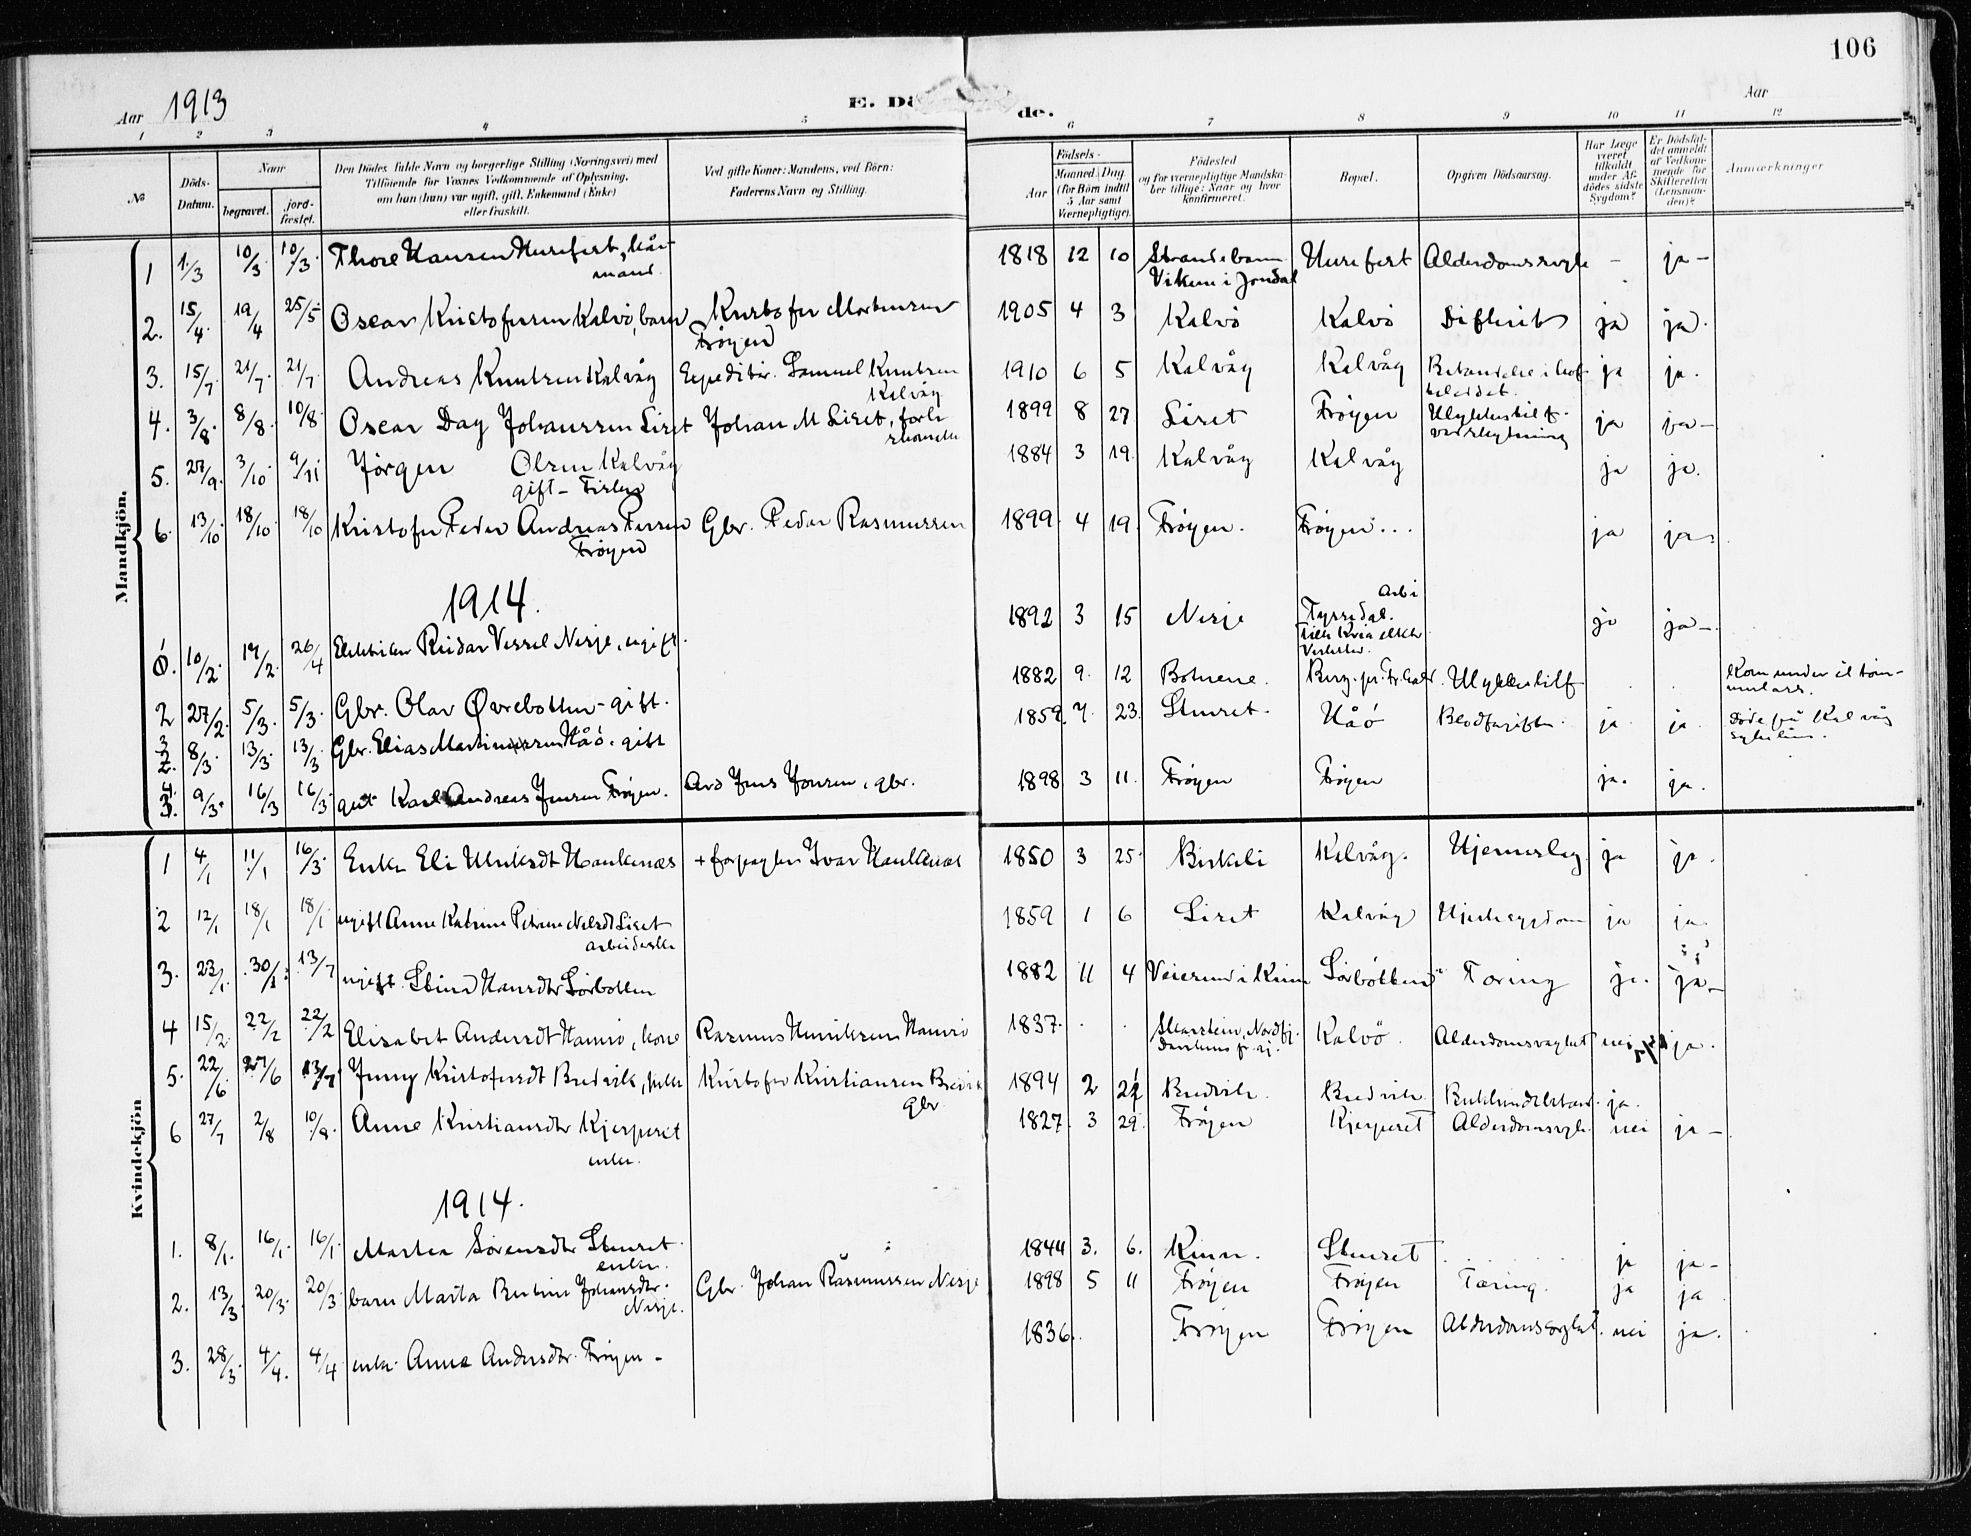 106
Aar 1913
E. Dö de.
Aar
1 2 3 4 5 6 7 8 9 10 11 12
№
Döds-Datum.
Naar
begravet.
jord-fæstet.
Den Dödes fulde Navn og borgerlige Stilling (Næringsvei) med
Tilföiende for Voxnes Vedkommende af Oplysning,
om han (hun) var ugift, gift, Enkemand (Enke)
eller fraskilt.
Ved gifte Koner: Mandens, ved Börn:
Faderens Navn og Stilling.
Aar
Födsels-
Maaned. Dag
(for Börn indtil
5 Aar samt
Værnepligtige).
Födested
og for værnepligtige Mandska-
ber tillige: Naar og hvor
konfirmeret.
Bopæl.
Opgiven Dödsaarsag.
Har Læge
været
tilkaldt
under Af-
dödes sidste
Sygdom?
Er Dödsfal-
det anmeldt
af Vedkom-
mende for
Skifteretten
(Lensman-
den)?
Anmærkninger
Mandkjön.
1 1/3 10/3 10/3 Thore Hansen Husefest, kår- 1818 12 10 Strandebarm Husefest - ja -
mand. Viken i Jondal
2. 15/4 19/4 25/5 Oscar Kristofersen Kalvö, barn Kristofer Martinsen 1905 4 3 Kalvö Kalvö Difterit ja ja.
Fröyen
3. 15/7 21/7 21/7 Andreas Knutsen Kalvåg Expeditör. Samuel Knutsen 1910 6 5 Kalvåg Kalvåg ja ja.
Kalvåg
4. 3/8 8/8 10/8 Oscar Dag Johanssen Liset Johan M Liset, 1899 8 27 Liset Fröyen ja ja -
5. 27/9. 3/10 9/11 Jörgen Olsen Kalvåg 1884 3 19. Kalvåg Kalvåg ja ja.
gift - Fisker
6. 13/10 18/10 18/10 Kristofer Peder Andreas Persen Gbr. Peder Rasmussen 1899 4 19. Fröyen. Fröyen... ja ja.
Fröyen
1914.
10/2. 19/2. 26/4 Elektriker Reidar Vessel Nesje, ugift. 1892 3 15 Nesje Tyssedal. ja ja -
2 27/2. 5/3. 5/3. Gbr. Olav Øvrebotten - gift. 1882 9. 12 Botnene. Ulykkestilf Kom under et töm-
merlass.
3 8/3. 13/3. 13/3 Gbr. Elias Martinussen Håö. gift 1859. 7. 23. Steinset. Håö Blodforgiftn. ja. ja. Döde på Kalvåg
sykehus.
4. 9/3. 16/3 16/3. gut Karl Andreas Jensen Fröyen. Jens Jonsen, gbr. 1898 3 11. Fröyen Fröyen ja. ja.
Kvindekjön
1 4/1 11/1 16/3. Enke Eli Haukenæs + forpagter Ivar Haukenæs 1850 3 25. Birkeli Kalvåg. Hjerneslag ja ja.
2 12/1 18/1 18/1 ugift Anne Katrine Petrine Nilsdt Liset 1859 1 6 Liset Kalvåg Hjertesygdom ja ja
arbeiderske
3. 23/1. 30/1 13/7 ugift. Stina Hansdtr Sörbotten 1882 11 4 Sörbotten Tæring ja. ja -
4 15/2. 22/2 22/2 Elisabet Andersdt Hamrö, kone Rasmus Henriksen Hamrö 1837. Kalvö. Alderdomsvaghet nei ja.
5. 22/6 27/6 13/7 Jenny Kristofersdt Bredvik, pike Kristofer Kristiansen Bredvik 1894 2 Bredvik. Bredvik ja.
Gbr.
6 27/7 2/8 10/8. Anne Kristiansdtr Kjerpeset 1827. 3 29. Fröyen Kjerpeset nei ja -
enke.
1914.
1. 8/1. 16/1. 16/1. Marta Sörensdtr Steinset. 1844 3. 6. Kinn. Steinset ja ja -
enke.
2. 13/3 20/3. 20/3. barn Marta Bertine Johansdtr. Gbr. Johan Rasmussen Nesje 1898 5 11 Fröyen Fröyen Tæring. ja ja
Nesje.
3. 28/3. 4/4. 4/4 enke. Anna Andersdtr. Fröyen - 1836. Fröyen Fröyen Alderdomsvaghet. nei ja.